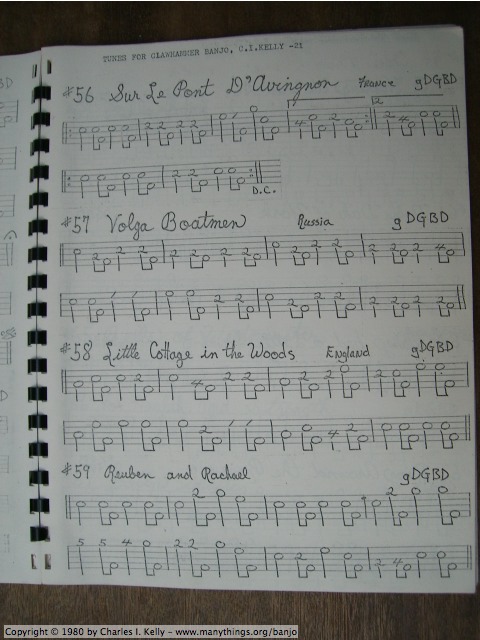 TUNES FOR CLAWHAMMER BANJO, C.I.KELLY -21
#56 Sur Le Pont D'Avingnon France gDGBD
1 2
D.C.
#57 Volga Boatmen Russia gDGBD
#58 Little Cottage in the Woods England gDGBD
#59 Reuben and Rachael gDGBD
Copyright © 1980 by Charles I. Kelly - www.manythings.org/banjo